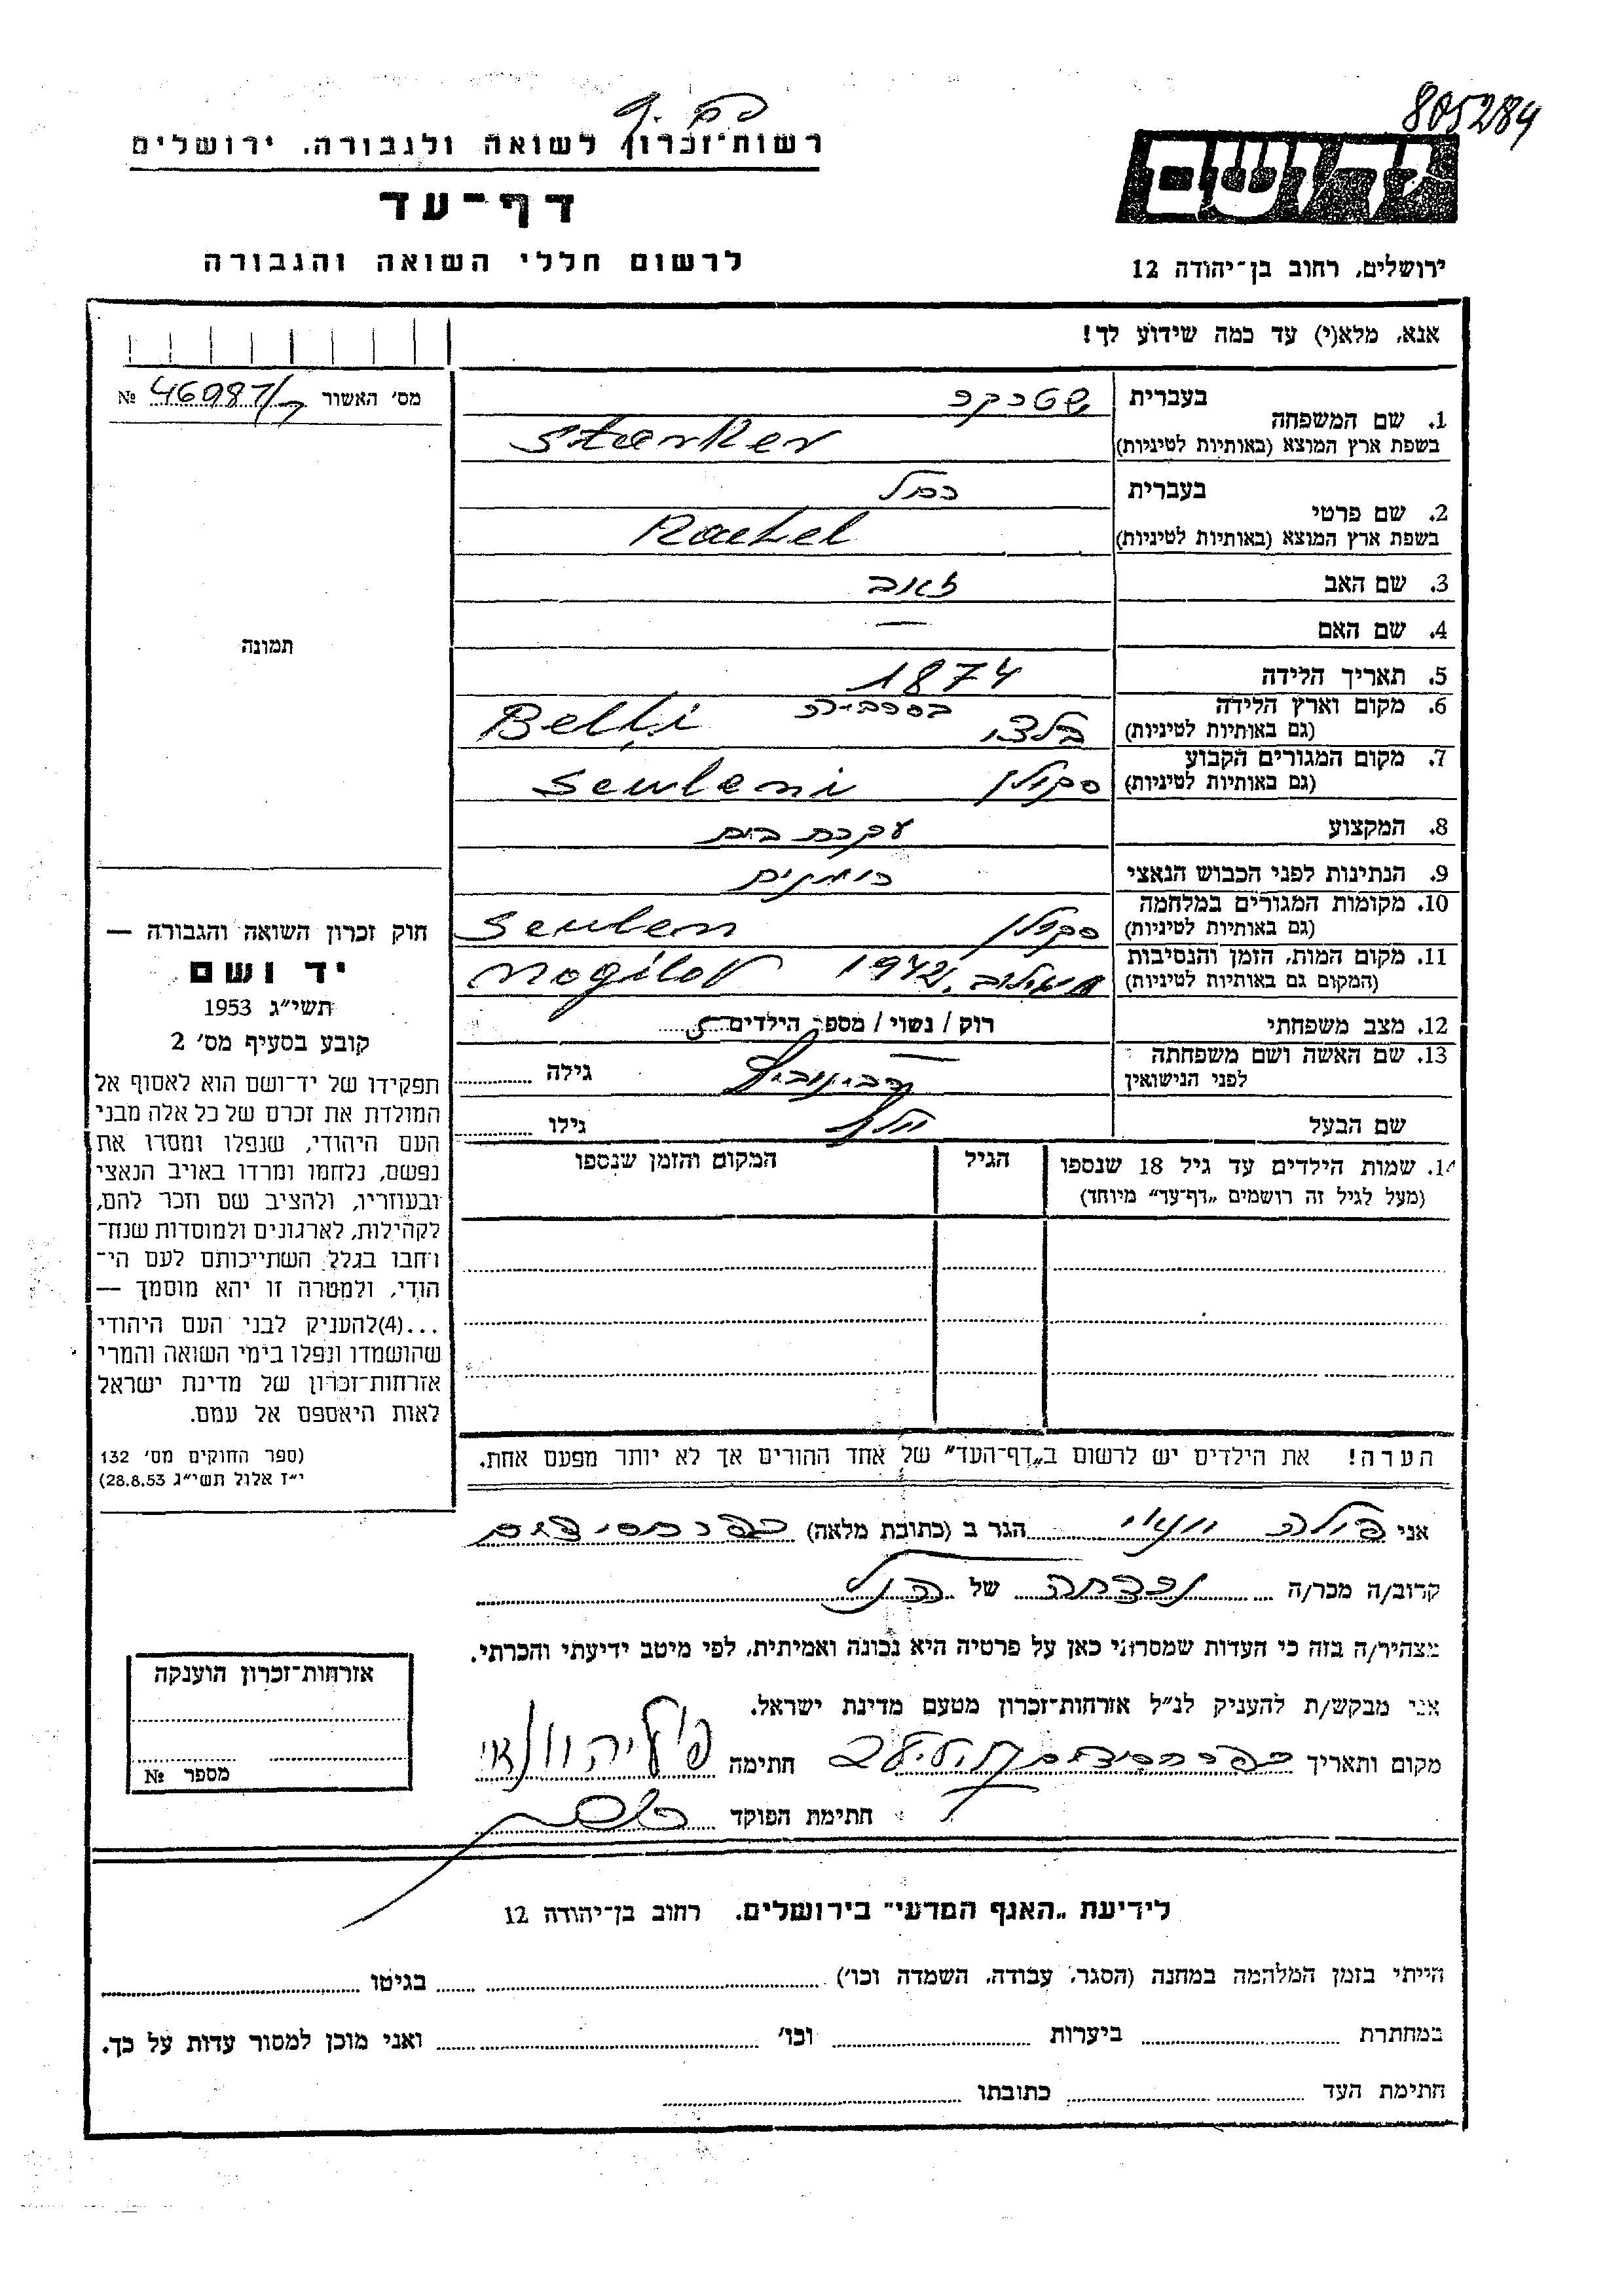 805284
רשות־זכרון לשואה ולגבורה, ירושלים
דף־עד
לרשום חללי השואה והגבורה
יד ושם
ירושלים, רחוב בן־יהודה 12
אנא, מלא(י) עד כמה שידוע לך!
מס׳ האשור № 46987/ק
1. שם המשפחה בעברית שטרקר
בשפת ארץ המוצא (באותיות לטיניות) Starker
2. שם פרטי בעברית רחל
בשפת ארץ המוצא (באותיות לטיניות) Rachel
3. שם האב זאב
4. שם האם —
5. תאריך הלידה 1874
6. מקום וארץ הלידה בלצי בסרביה Belţi
(גם באותיות לטיניות)
7. מקום המגורים הקבוע סקולן Sculeni
(גם באותיות לטיניות)
8. המקצוע עקרת בית
9. הנתינות לפני הכבוש הנאצי
10. מקומות המגורים במלחמה סקולן Sculen
(גם באותיות לטיניות)
11. מקום המות, הזמן והנסיבות מוגילוב, 1942 Mogilov
(המקום גם באותיות לטיניות)
12. מצב משפחתי רוק / נשוי / מספר הילדים 5
13. שם האשה ושם משפחתה
לפני הנישואין רבינוביץ גילה
שם הבעל גילו
14. שמות הילדים עד גיל 18 שנספו הגיל המקום והזמן שנספו
(מעל לגיל זה רושמים „דף־עד״ מיוחד)
הערה! את הילדים יש לרשום ב„דף־העד״ של אחד ההורים אך לא יותר מפעם אחת.
תמונה
חוק זכרון השואה והגבורה —
יד ושם
תשי״ג 1953
קובע בסעיף מס׳ 2
תפקידו של יד־ושם הוא לאסוף אל
המולדת את זכרם של כל אלה מבני
העם היהודי, שנפלו ומסרו את
נפשם, נלחמו ומרדו באויב הנאצי
ובעוזריו, ולהציב שם וזכר להם,
לקהילות, לארגונים ולמוסדות שנח־
רחבו בגלל השתייכותם לעם הי־
הודי, ולמטרה זו יהא מוסמך —
...(4)להעניק לבני העם היהודי
שהושמדו ונפלו בימי השואה והמרי
אזרחות־זכרון של מדינת ישראל
לאות היאספם אל עמם.
(ספר החוקים מס׳ 132
י״ז אלול תשי״ג 28.8.53)
אני הגר ב (כתובת מלאה)
קרוב/ה מכר/ה נכדתה של הנ״ל
מצהיר/ה בזה כי העדות שמסרתי כאן על פרטיה היא נכונה ואמיתית, לפי מיטב ידיעתי והכרתי.
אני מבקש/ת להעניק לנ״ל אזרחות־זכרון מטעם מדינת ישראל.
מקום ותאריך חתימה
חתימת הפוקד
אזרחות־זכרון הוענקה
מספר №
לידיעת „האגף המדעי״ בירושלים, רחוב בן־יהודה 12
הייתי בזמן המלחמה במחנה (הסגר, עבודה, השמדה וכו׳) בגיטו
במחתרת ביערות וכו׳ ואני מוכן למסור עדות על כך.
חתימת העד כתובתו